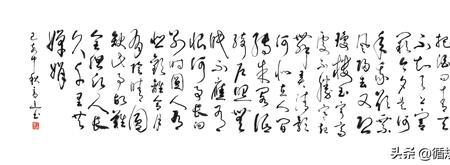 把酒问青天
不知天上宫
阙今夕是何
年我欲乘
风归去又恐
琼楼玉宇高
处不胜寒起
舞弄清影
何似在人间
转朱阁低
绮户照无
眠不应有
恨何事长向
别时圆人有
悲欢离合月
有阴晴圆
缺此事古难
全但愿人长
久千里共
婵娟
己亥中秋
头条 @循规